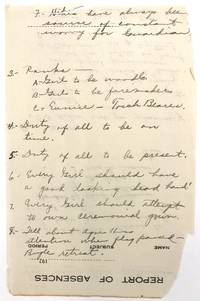 7. Hikes have always been
source of constant
worry for Guardian
3- Ranks -
A- Girl to be woodg.
B- Girl to be firemaker
C- Eunice - Torch Bearer
4- Duty of all to be on
time.
5- Duty of all to be present.
6- Every Girl should have
a good looking head band
7- Every Girl should attempt
to own ceremonial gown.
8- Tell about
attention when flag passed -
Bugle retreat.
REPORT OF ABSENCES
NAME
SUBJECT
PERIOD
192